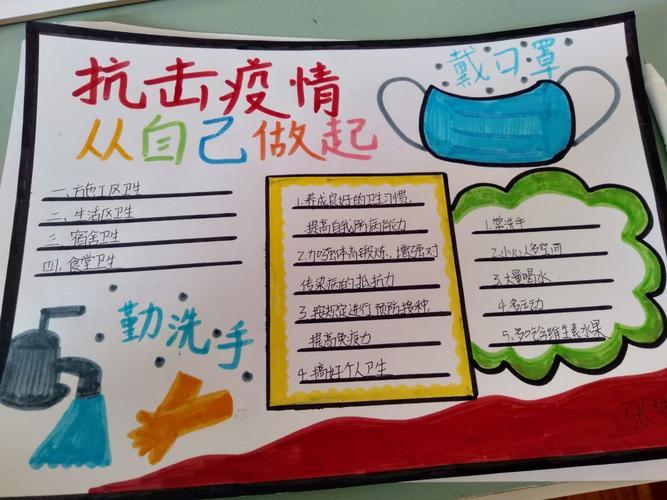 抗击疫情
从自己做起
戴口罩
二、生活区卫生
三、宿舍卫生
四、食堂卫生
勤洗手
1.养成良好的卫生习惯,
提高自我防病能力
2.加强体育锻炼、增强对
传染病的抵抗力
3.按规定进行预防接种,
提高免疫力
4.搞好个人卫生
1.常洗手
2.小心人多空间
3.大量喝水
4.多运动
5.多吃含维生素水果